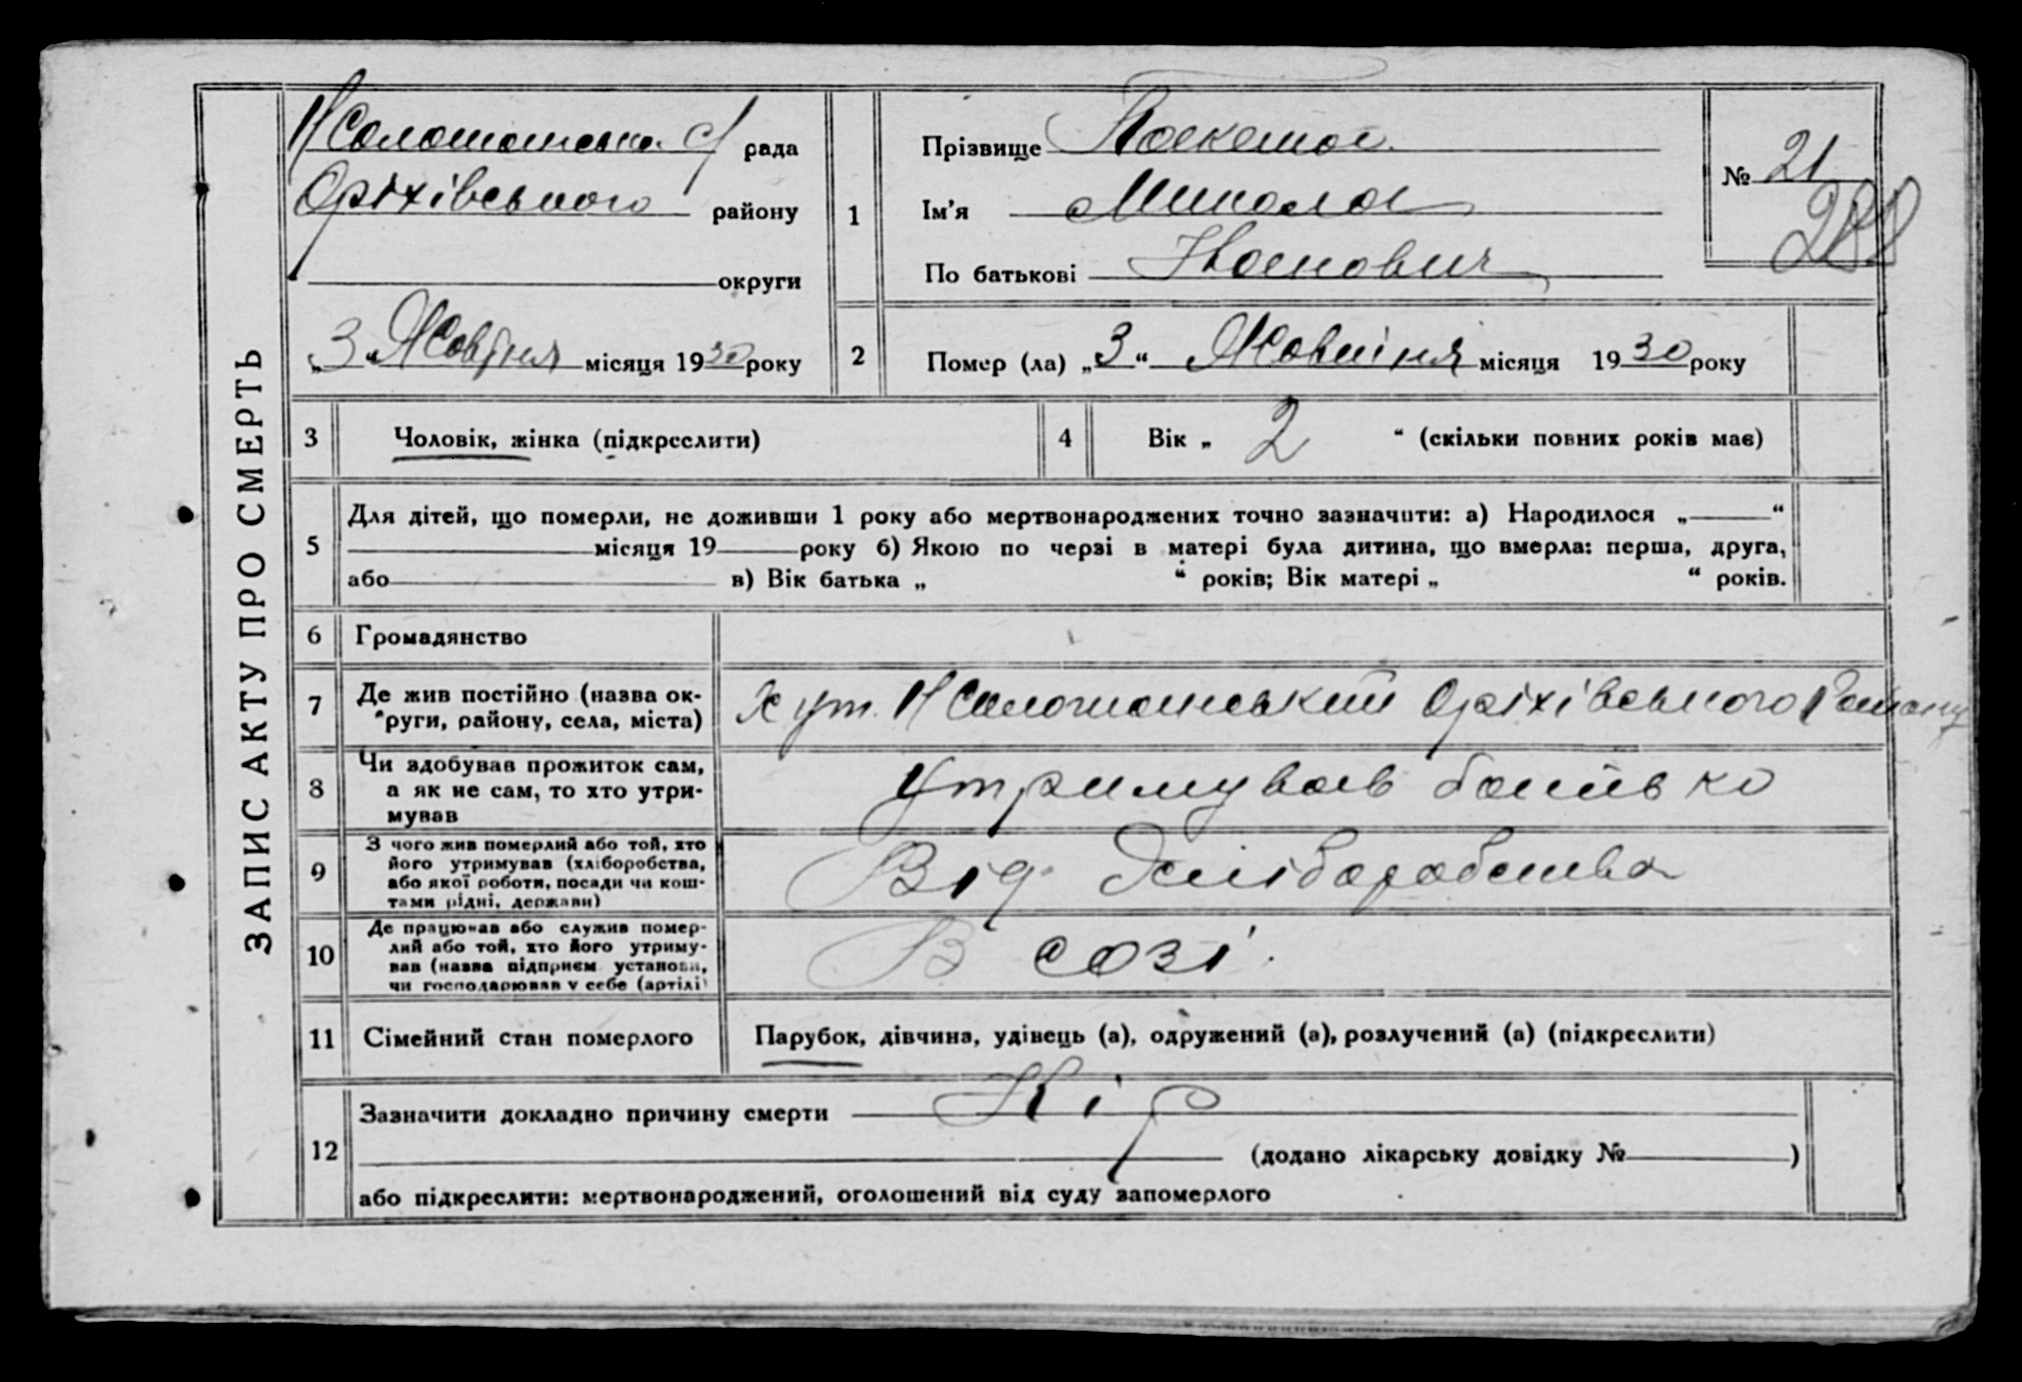 ЗАПИС АКТУ ПРО СМЕРТЬ
рада
Оріхівського району
округи
„3“ Жовтня місяця 1930 року
1
Прізвище
Ім'я Микола
По батькові Іванович
№ 21
288
2
Помер (ла) „3“ Жовтня місяця 1930 року
3
Чоловік, жінка (підкреслити)
4
Вік „ 2 “ (скільки повних років має)
5
Для дітей, що померли, не доживши 1 року або мертвонароджених точно зазначити: а) Народилося „ “
місяця 19 року б) Якою по черзі в матері була дитина, що вмерла: перша, друга,
або в) Вік батька „ “ років; Вік матері „ “ років.
6
Громадянство
7
Де жив постійно (назва ок-
руги, району, села, міста)
Хут. Н Солошанський Оріхівського Району
8
Чи здобував прожиток сам,
а як не сам, то хто утри-
мував
Утримував батько
9
З чого жив померлий або той, хто
його утримував (хліборобства,
або якої роботи, посади чи кош-
тами рідні, держави)
Від Хліборобства
10
Де працював або служив помер-
лий або той, хто його утриму-
вав (назва підприєм установи,
чи господарював у себе (артілі)
В созі.
11
Сімейний стан померлого
Парубок, дівчина, удівець (а), одружений (а), розлучений (а) (підкреслити)
12
Зазначити докладно причину смерти Кір
(додано лікарську довідку № )
або підкреслити: мертвонароджений, оголошений від суду запомерлого